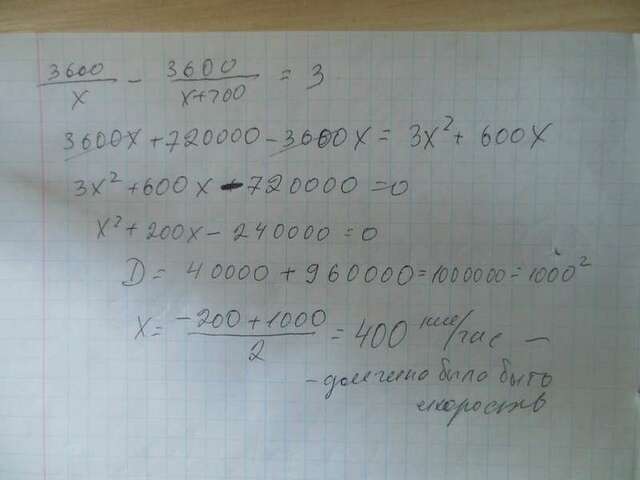 3600/x - 3600/x+200 = 3
3600x+720000-3600x = 3x²+ 600x
3x²+600x-720000=0
x²+200x-240000=0
D= 40000+960000=1000000=1000²
x= -200+1000/2 = 400 км/час —
- должно было быть
скорость